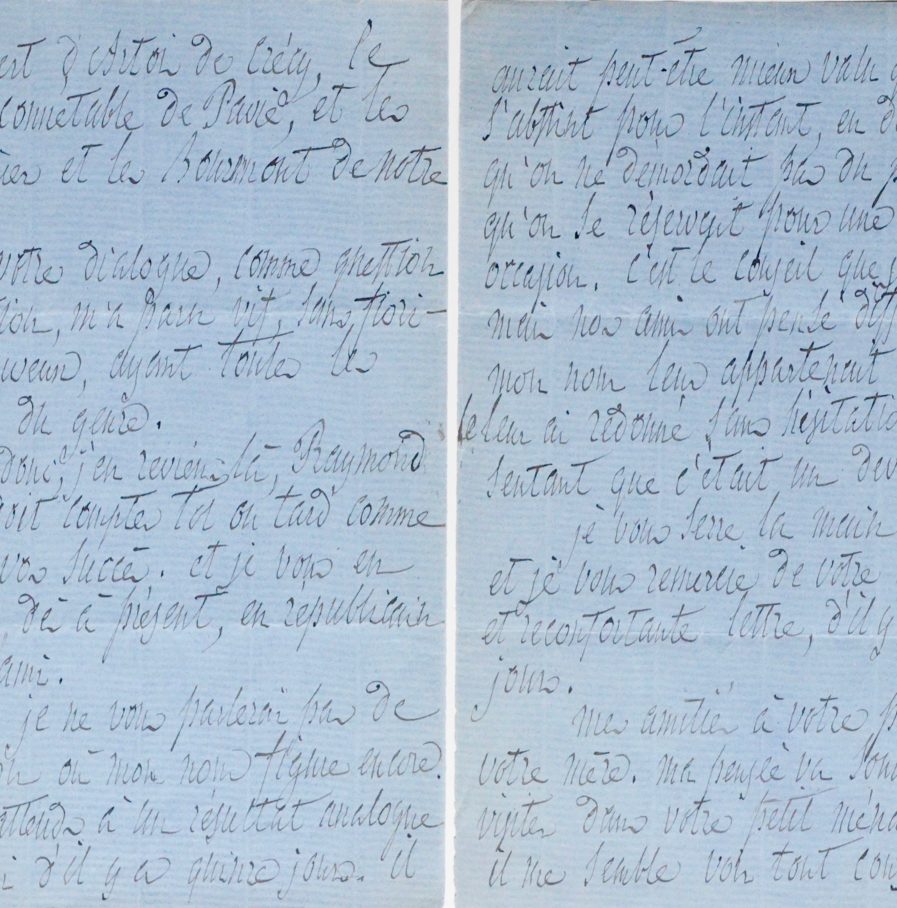 d'Artois de Crécy, le
connetable de Pavie, et les
et les Bourmont de notre
votre dialogue, comme question
m'a paru vif, sans flori-
ayant toutes les
du genre.
donc, j'en reviens là, Raymond
doit compter tot ou tard comme
succès. et je vous en
dès à présent, en republicain
ami.
je ne vous parlerai pas de
où mon nom figure encore.
à un résultat analogue
d'il y a quinze jours. il
aurait peut-être mieux valu
s'abstînt pour l'instant, en
qu'on ne démordait pas du
qu'on se réservait pour une
occasion. c'est le conseil que
mais nos amis ont pensé
mon nom leur appartenait
je leur ai redonné sans
sentant que c'était un
je vous serre la main
et je vous remercie de votre
et reconfortante lettre, d'il y
jours.
mes amitiés à votre
votre mère. ma pensée va
visiter dans votre petit
il me semble voir tout